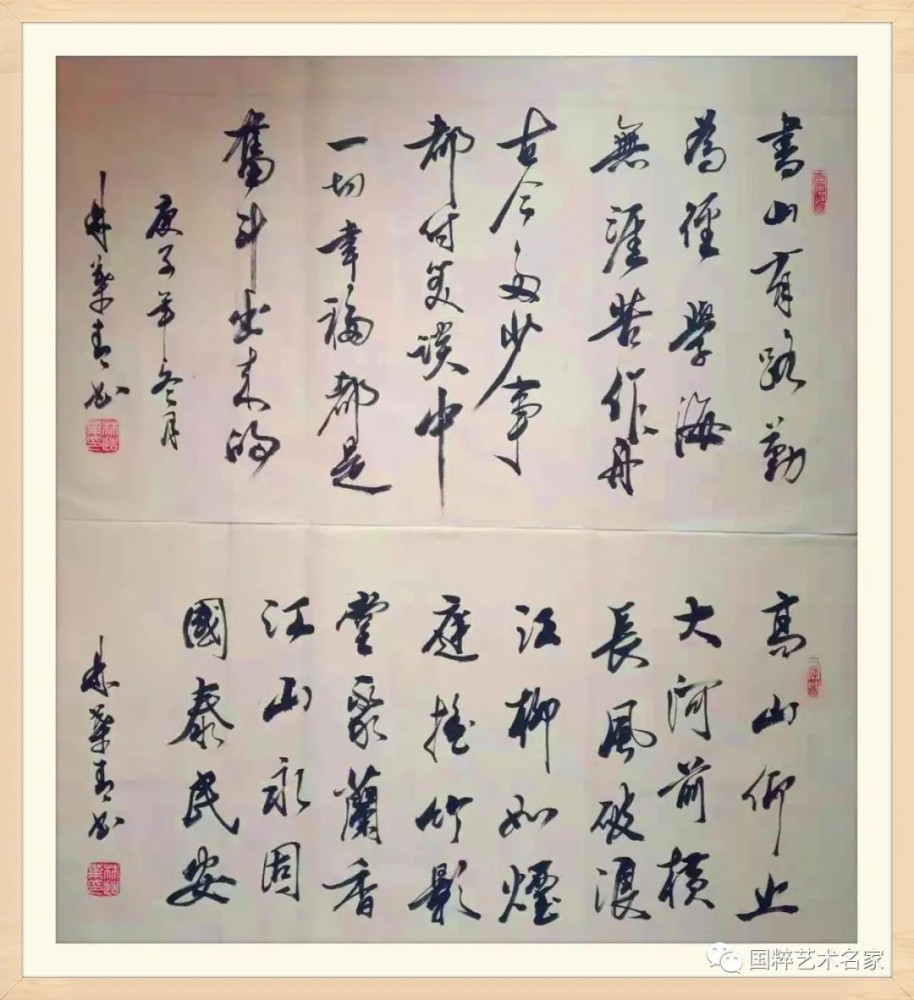 書山有路勤
為徑學海
無涯苦作舟
古今多少事
都付笑談中
一切幸福都是
奮斗出来的
庚子年冬月
林業青书
高山仰止
大河前横
長風破浪
江柳如煙
庭搖竹影
堂聚蘭香
江山永固
國泰民安
林業青书
国粹艺术名家